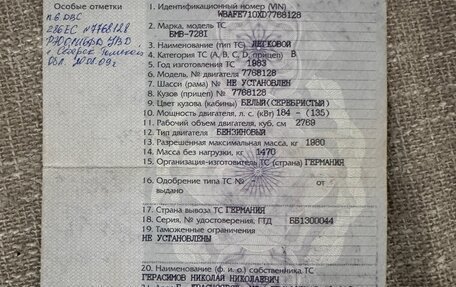 Особые отметки
1. Идентификационный номер (VIN)
WBAFE710XD7768128
2. Марка, модель ТС
БМВ-728I
3. Наименование (тип ТС) ЛЕГКОВОЙ
4. Категория ТС (А, В, С, D, прицеп) В
5. Год изготовления ТС 1983
6. Модель, № двигателя 7768128
7. Шасси (рама) № НЕ УСТАНОВЛЕН
8. Кузов (прицеп) № 7768128
9. Цвет кузова (кабины) БЕЛЫЙ(СЕРЕБРИСТЫЙ)
10. Мощность двигателя, л. с. (кВт) 184 - (135)
11. Рабочий объем двигателя, куб. см 2769
12. Тип двигателя БЕНЗИНОВЫЙ
13. Разрешенная максимальная масса, кг 1980
14. Масса без нагрузки, кг 1470
15. Организация-изготовитель ТС (страна) ГЕРМАНИЯ
16. Одобрение типа ТС № - от
выдано
17. Страна вывоза ТС ГЕРМАНИЯ
18. Серия, № удостоверения, ГТД ББ1300044
19. Таможенные ограничения
НЕ УСТАНОВЛЕНЫ
20. Наименование (ф. и. о.) собственника ТС
ГЕРАСИМОВ НИКОЛАЙ НИКОЛАЕВИЧ